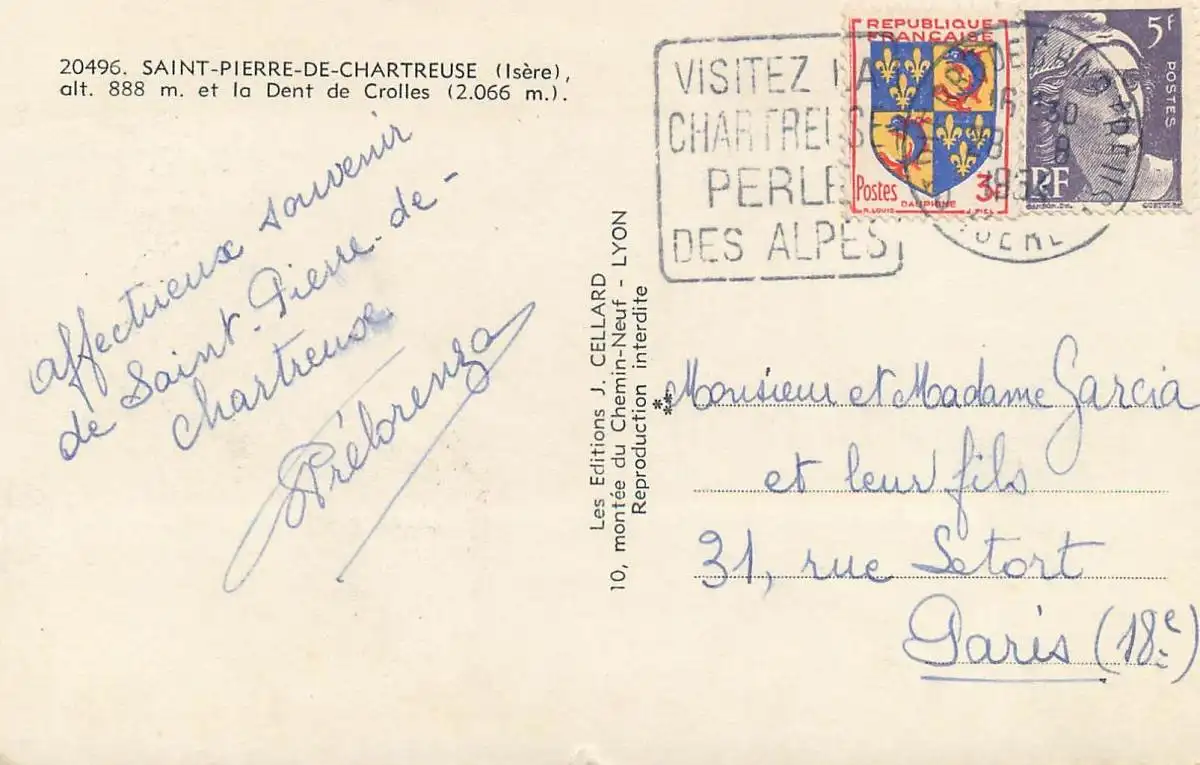 20496. SAINT-PIERRE-DE-CHARTREUSE (Isère),
alt. 888 m. et la Dent de Crolles (2.066 m.).
affectueux souvenir
de Saint-Pierre-de-
Chartreuse
Prélorenza
Les Editions J. CELLARD
10, montée du Chemin-Neuf - LYON
Reproduction interdite
VISITEZ LA
CHARTREUSE
PERLE
DES ALPES
REPUBLIQUE
FRANÇAISE
Postes 3f
DAUPHINÉ
R. LOUIS J. PIEL
5F
POSTES
RF
16 30
ISERE
Monsieur et Madame Garcia
et leur fils
31, rue Letort
Paris (18e)